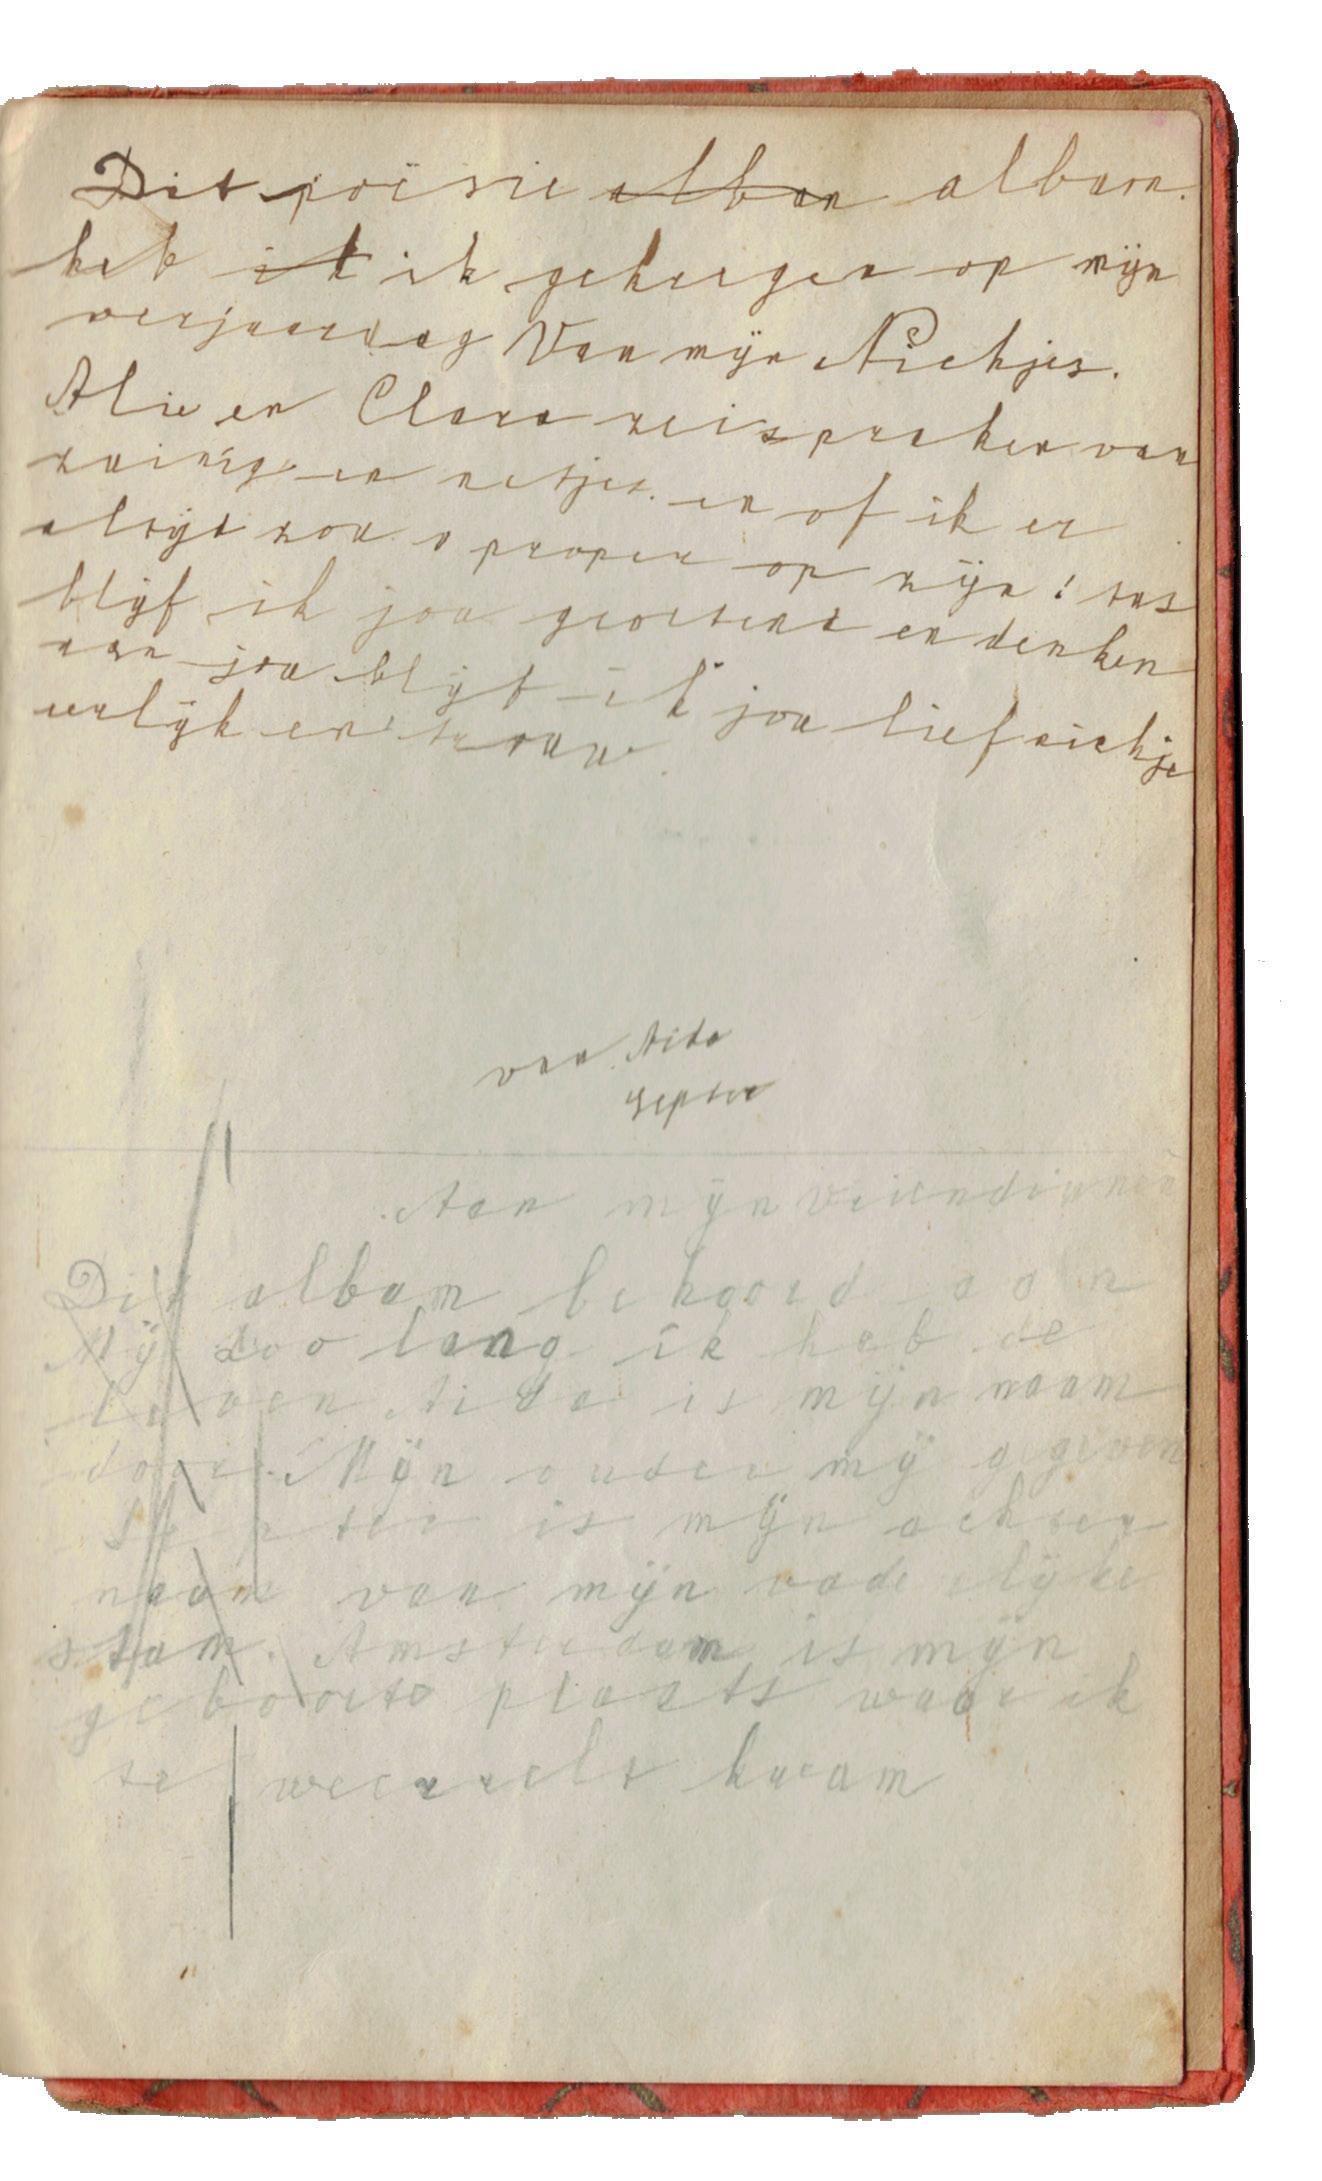 Dit poësie alban album.
heb ik ik gekregen op mijn
verjaardag Van mijn Nichjes.
Alie en Clara zei spraken van
zuinig en netjes. en of ik er
altijt zou o propen op zijn! tus
blijf ik jou groetent en denken
aan jou blijf ik jou lief nichje
eerlijk en trouw.
van Aida
Septer
Aan mijn vriendinnen
Dit album behoord aan
Mij zoo lang ik heb de
leven Aida is mijn naam
door Mijn ouder mij gegeven
Septer is mijn achter
naam van mijn vaderlijke
stam. Amsterdam is mijn
geboorte plaats waar ik
te weerelt kwam